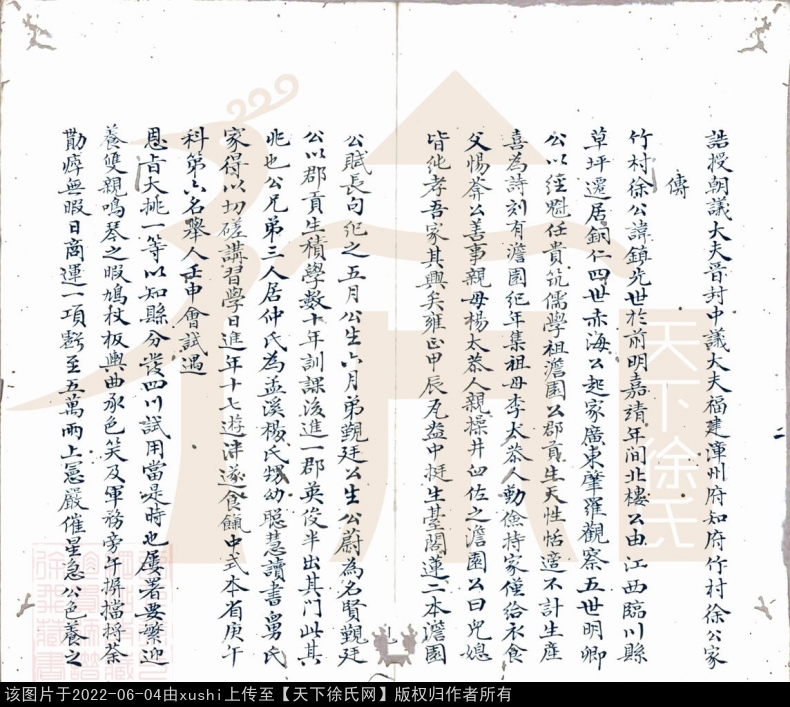 誥授朝議大夫晉封中議大夫福建漳州府知府竹村徐公家
傳
竹村徐公諱鎮先世於前明嘉靖年间北樓公由江西臨川縣
草坪遷居銅仁四世赤海公起家廣東肇羅觀察五世明卿
公以經魁任貴筑儒學祖澹園公郡貢生天性恬適不計生產
喜為詩刻有澹園紀年集祖母李太恭人勤儉持家僅給衣食
父惕菴公善事親母楊太恭人親操井臼佐之澹園公曰兒媳
皆純孝吾家其興矣雍正甲辰瓦盎中挺生臺閣蓮二本澹園
公賦長句纪之五月公生六月弟觐廷公生公蔚為名賢觐廷
公以郡貢生積學數十年訓課後進一郡英俊半出其門此其
兆也公兄弟三人居仲氏為孟溪楊氏甥幼聰慧讀書舅氏
家得以切磋講習學日進年十七遊泮遂食餼中式本省庚午
科第六名舉人壬申會試遇
恩旨大挑一等以知縣分發四川試用當是時也屢署要繁迎
養雙親鳴琴之暇鳩杖板輿曲承色笑及軍務旁午摒擋捋荼
勩瘁無暇日商運一項虧至五萬兩上憲嚴催星急公色養之
二
天下徐氏
该图片于2022-06-04由xushi上传至【天下徐氏网】版权归作者所有